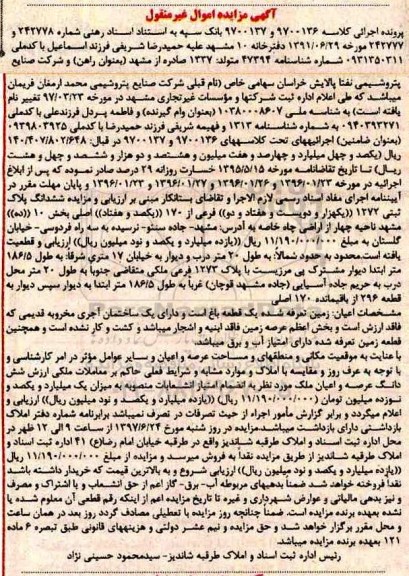 آگهی مزایده اموال غیرمنقول
پرونده اجرائی کلاسه ۹۷۰۰۱۳۶ و ۹۷۰۰۱۳۷ بانک سپه به استناد اسناد رهنی شماره ۲۴۲۷۷۸ و
۲۴۲۷۷۷ مورخه ۱۳۹۱/۰۶/۲۹ دفترخانه ۱۰ مشهد علیه حمیدرضا شریفی فرزند اسماعیل با کدملی
۰۹۳۱۳۵۰۳۱۱ شماره شناسنامه ۴۷۳۹۴ متولد: ۱۳۳۷ صادره از مشهد (بعنوان راهن) و شرکت صنایع
پتروشیمی نفتا پالایش خراسان سهامی خاص (نام قبلی شرکت صنایع پتروشیمی محمد ارمغان فریمان
میباشد که طی اعلام اداره ثبت شرکتها و مؤسسات غیرتجاری مشهد در مورخه ۹۷/۰۳/۲۳ تغییر نام
یافته است) به شناسه ملی ۱۰۳۸۰۰۰۸۶۰۷ (بعنوان وام گیرنده) و فاطمه پردل فرزندعلی با کدملی
۰۹۴۰۳۹۳۲۷۱ به شماره شناسنامه ۱۳۱۳ و فهیمه شریفی فرزند حمیدرضا با کدملی ۰۹۳۹۸۰۳۹۲۵
(بعنوان ضامنین) اجرائیههای تحت کلاسههای ۹۷۰۰۱۳۶ و ۹۷۰۰۱۳۷ در قبال: ۱۴۰/۴۰۷/۸۰۲/۶۴۸
ریال (یکصد و چهل میلیارد و چهارصد و هفت میلیون و هشتصد و دو هزار و ششصد و چهل و هشت
ریال) تا تاریخ تقاضانامه مورخه ۱۳۹۵/۵/۱۵ خسارت روزانه ۲۹ درصد صادر نموده که پس از ابلاغ
اجرائیه در مورخه ۱۳۹۶/۰۱/۲۳ و ۱۳۹۶/۰۱/۲۶ و ۱۳۹۶/۰۱/۲۷ و ۱۳۹۶/۰۱/۲۳ و پایان مهلت مقرر در
آییننامه اجرای مفاد اسناد رسمی لازم الاجرا و تقاضای بستانکار مبنی بر ارزیابی و مزایده ششدانگ پلاک
ثبتی ۱۲۷۲ (یکهزار و دویست و هفتاد و دو)) فرعی از ۱۷۰ ((یکصد و هفتاد)) اصلی بخش ۱۰ ((ده))
مشهد ناحیه چهار از اراضی چاه خاصه به آدرس: مشهد- جاده سنتو- نرسیده به سه راه فردوسی- خیابان
گلستان به مبلغ ۱۱/۱۹۰/۰۰۰/۰۰۰ ریال ((یازده میلیارد و یکصد و نود میلیون ریال)) ارزیابی و قطعیت
یافته است.محدود به حدود شمالاً: به طول ۲۰ متر درب و دیوار به خیابان ۱۷ متری شرقا: به طول ۱۸۶/۵
متر ابتدا دیوار مشترک پی مرزیست با پلاک ۱۲۷۳ فرعی ملکی متقاضی جنوبا به طول ۲۰ متر محل
درب به حریم جاده آسیایی (جاده مشهد قوچان) غرباً به طول ۱۸۶/۵ متر ابتدا به دیوار سپس دیوار به
قطعه ۲۹۶ از باقیمانده ۱۷۰ اصلی
مشخصات اعیان: زمین تعرفه شده یک قطعه باغ است و دارای یک ساختمان آجری مخروبه قدیمی که
فاقد ارزش است و بخش اعظم عرصه زمین فاقد ابنیه و اشجار میباشد و کشت و کار نشده است و همچنین
قطعه زمین تعرفه شده دارای امتیاز آب و برق میباشد.
با عنایت به موقعیت مکانی و منطقهای و مساحت عرصه و اعیان و سایر عوامل مؤثر در امر کارشناسی و
با توجه به عرف روز و مقایسه با املاک و موارد مشابه و شرایط فعلی حاکم بر معاملات ملکی ارزش شش
دانگ عرصه و اعیان ملک مورد نظر به انضمام امتیاز انشعابات منصوبه به میزان یک میلیارد و یکصد و
نوزده میلیون تومان (۱۱/۱۹۰/۰۰۰/۰۰۰ ریال) ((یازده میلیارد و یکصد و نود میلیون ریال)) ارزیابی و
اعلام میگردد و برابر گزارش مأمور اجراء از حیث تصرفات در تصرف نمیباشد برابرنامه شماره دفتر املاک
بازداشتی دارای بازداشت میباشد.مزایده در روز شنبه مورخ ۱۳۹۷/۶/۲۴ از ساعت ۹ الی ۱۲ ظهر در
محل اداره ثبت اسناد و املاک طرقبه شاندیز واقع در طرقبه خیابان امام رضا(ع) ۴۱ اداره ثبت اسناد و
املاک طرقبه شاندیز از طریق مزایده نقداً به فروش میرسد و مزایده از مبلغ ۱۱/۱۹۰/۰۰۰/۰۰۰ ریال
((یازده میلیارد و یکصد و نود میلیون ریال)) ارزیابی شروع و به بالاترین قیمت که خریدار داشته باشد
نقداً فروخته خواهد شد ضمناً بدهیهای مربوطه آب- برق- گاز اعم از حق انشعاب و یا اشتراک و مصرف
و نیز بدهی مالیاتی و عوارض شهرداری و غیره تا تاریخ مزایده اعم از اینکه رقم قطعی آن معلوم شده یا
نشده بعهده برنده مزایده است. ضمناً چنانچه روز مزایده با تعطیلی مصادف گردد روز بعد در همان ساعت
و محل مقرر برگزار خواهد شد و حق مزایده و نیم عشر دولتی و هزینههای قانونی طبق تبصره ۶ ماده
۱۲۱ بعهده برنده مزایده میباشد.
رئیس اداره ثبت اسناد و املاک طرقبه شاندیز- سیدمحمود حسینی نژاد